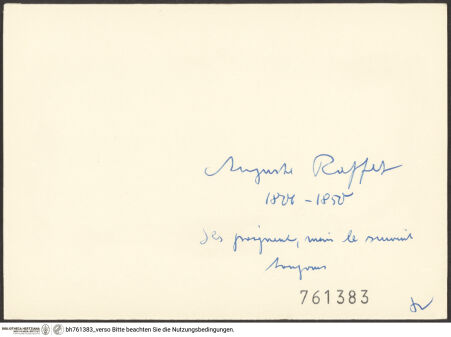 Auguste Raffet
1806 - 1850
Ils grognent, mais le suivent
toujours
761383
BIBLIOTHECA HERTZIANA bh761383_verso Bitte beachten Sie die Nutzungsbedingungen.